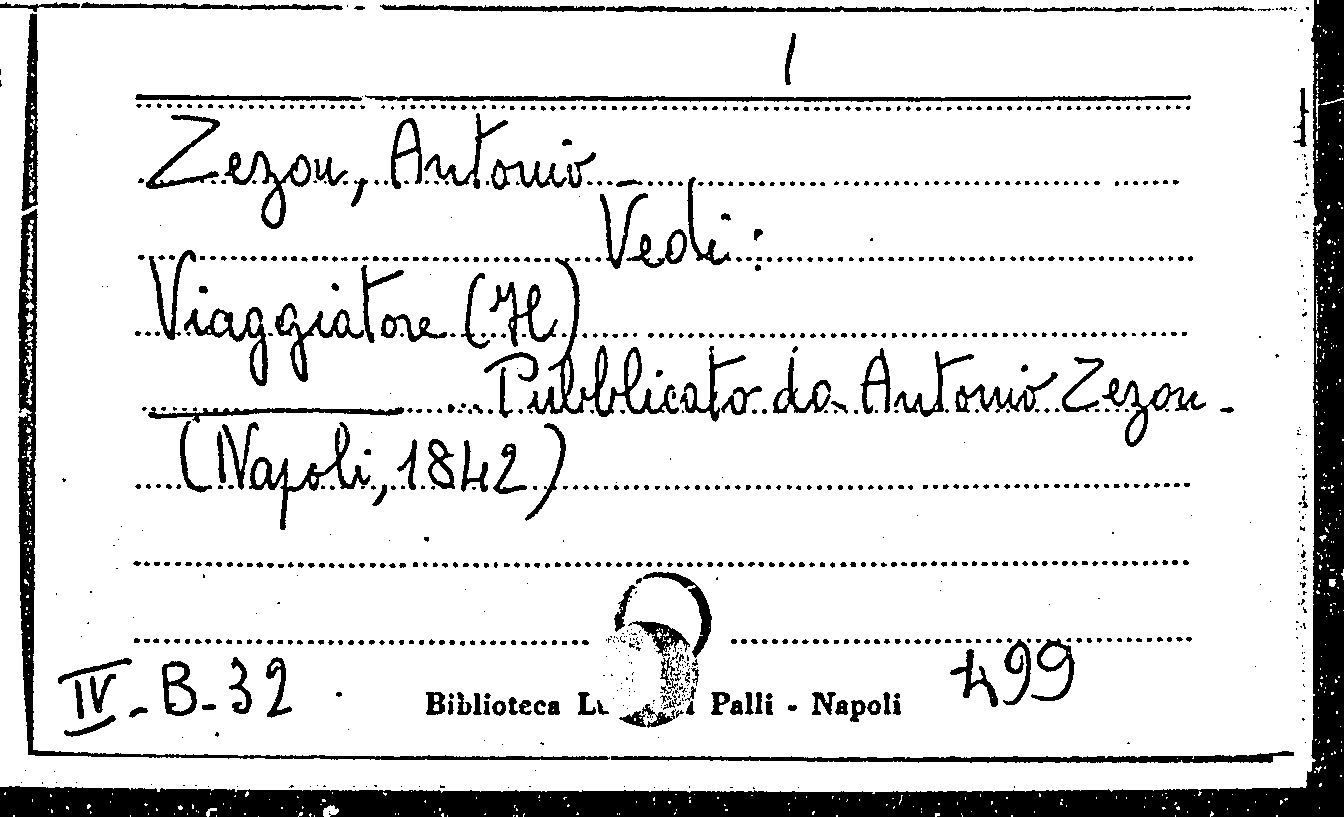 1
Zezon, Antonio -
Vedi:
Viaggiatore (Il)
... Pubblicato da Antonio Zezon -
(Napoli, 1842)
IV - B - 32
Biblioteca Palli - Napoli
499